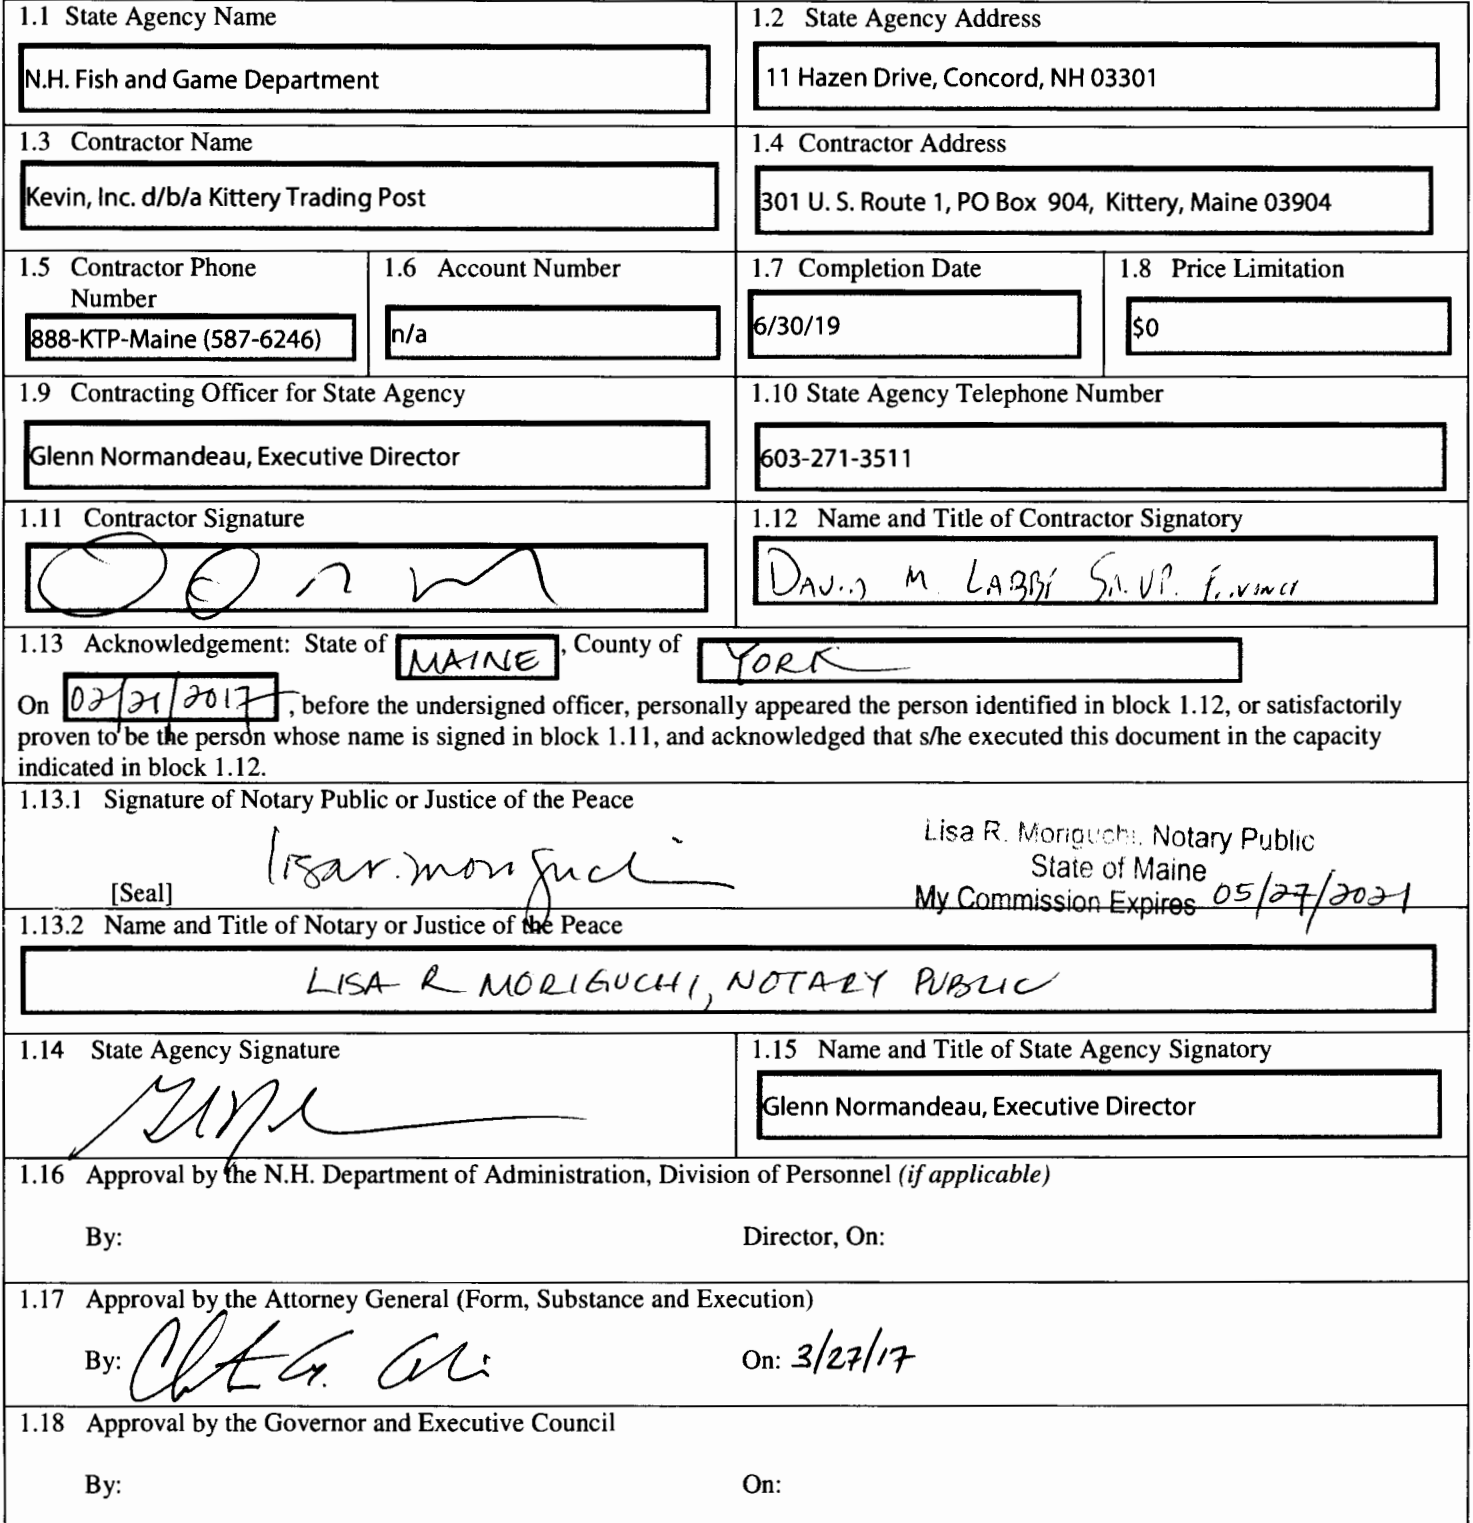 1.1 State Agency Name
N.H. Fish and Game Department
1.2 State Agency Address
11 Hazen Drive, Concord, NH 03301
1.3 Contractor Name
Kevin, Inc. d/b/a Kittery Trading Post
1.4 Contractor Address
301 U. S. Route 1, PO Box 904, Kittery, Maine 03904
1.5 Contractor Phone
Number
888-KTP-Maine (587-6246)
1.6 Account Number
n/a
1.7 Completion Date
6/30/19
1.8 Price Limitation
$0
1.9 Contracting Officer for State Agency
Glenn Normandeau, Executive Director
1.10 State Agency Telephone Number
603-271-3511
1.11 Contractor Signature
1.12 Name and Title of Contractor Signatory
DAVID M LABBÉ SR. VP. FINANCE
1.13 Acknowledgement: State of MAINE, County of YORK
On 02/21/2017, before the undersigned officer, personally appeared the person identified in block 1.12, or satisfactorily
proven to be the person whose name is signed in block 1.11, and acknowledged that s/he executed this document in the capacity
indicated in block 1.12.
1.13.1 Signature of Notary Public or Justice of the Peace
lisa r. moriguchi
[Seal]
Lisa R. Moriguchi, Notary Public
State of Maine
My Commission Expires 05/27/2021
1.13.2 Name and Title of Notary or Justice of the Peace
LISA R MORIGUCHI, NOTARY PUBLIC
1.14 State Agency Signature
1.15 Name and Title of State Agency Signatory
Glenn Normandeau, Executive Director
1.16 Approval by the N.H. Department of Administration, Division of Personnel (if applicable)
By: Director, On:
1.17 Approval by the Attorney General (Form, Substance and Execution)
By: On: 3/27/17
1.18 Approval by the Governor and Executive Council
By: On: